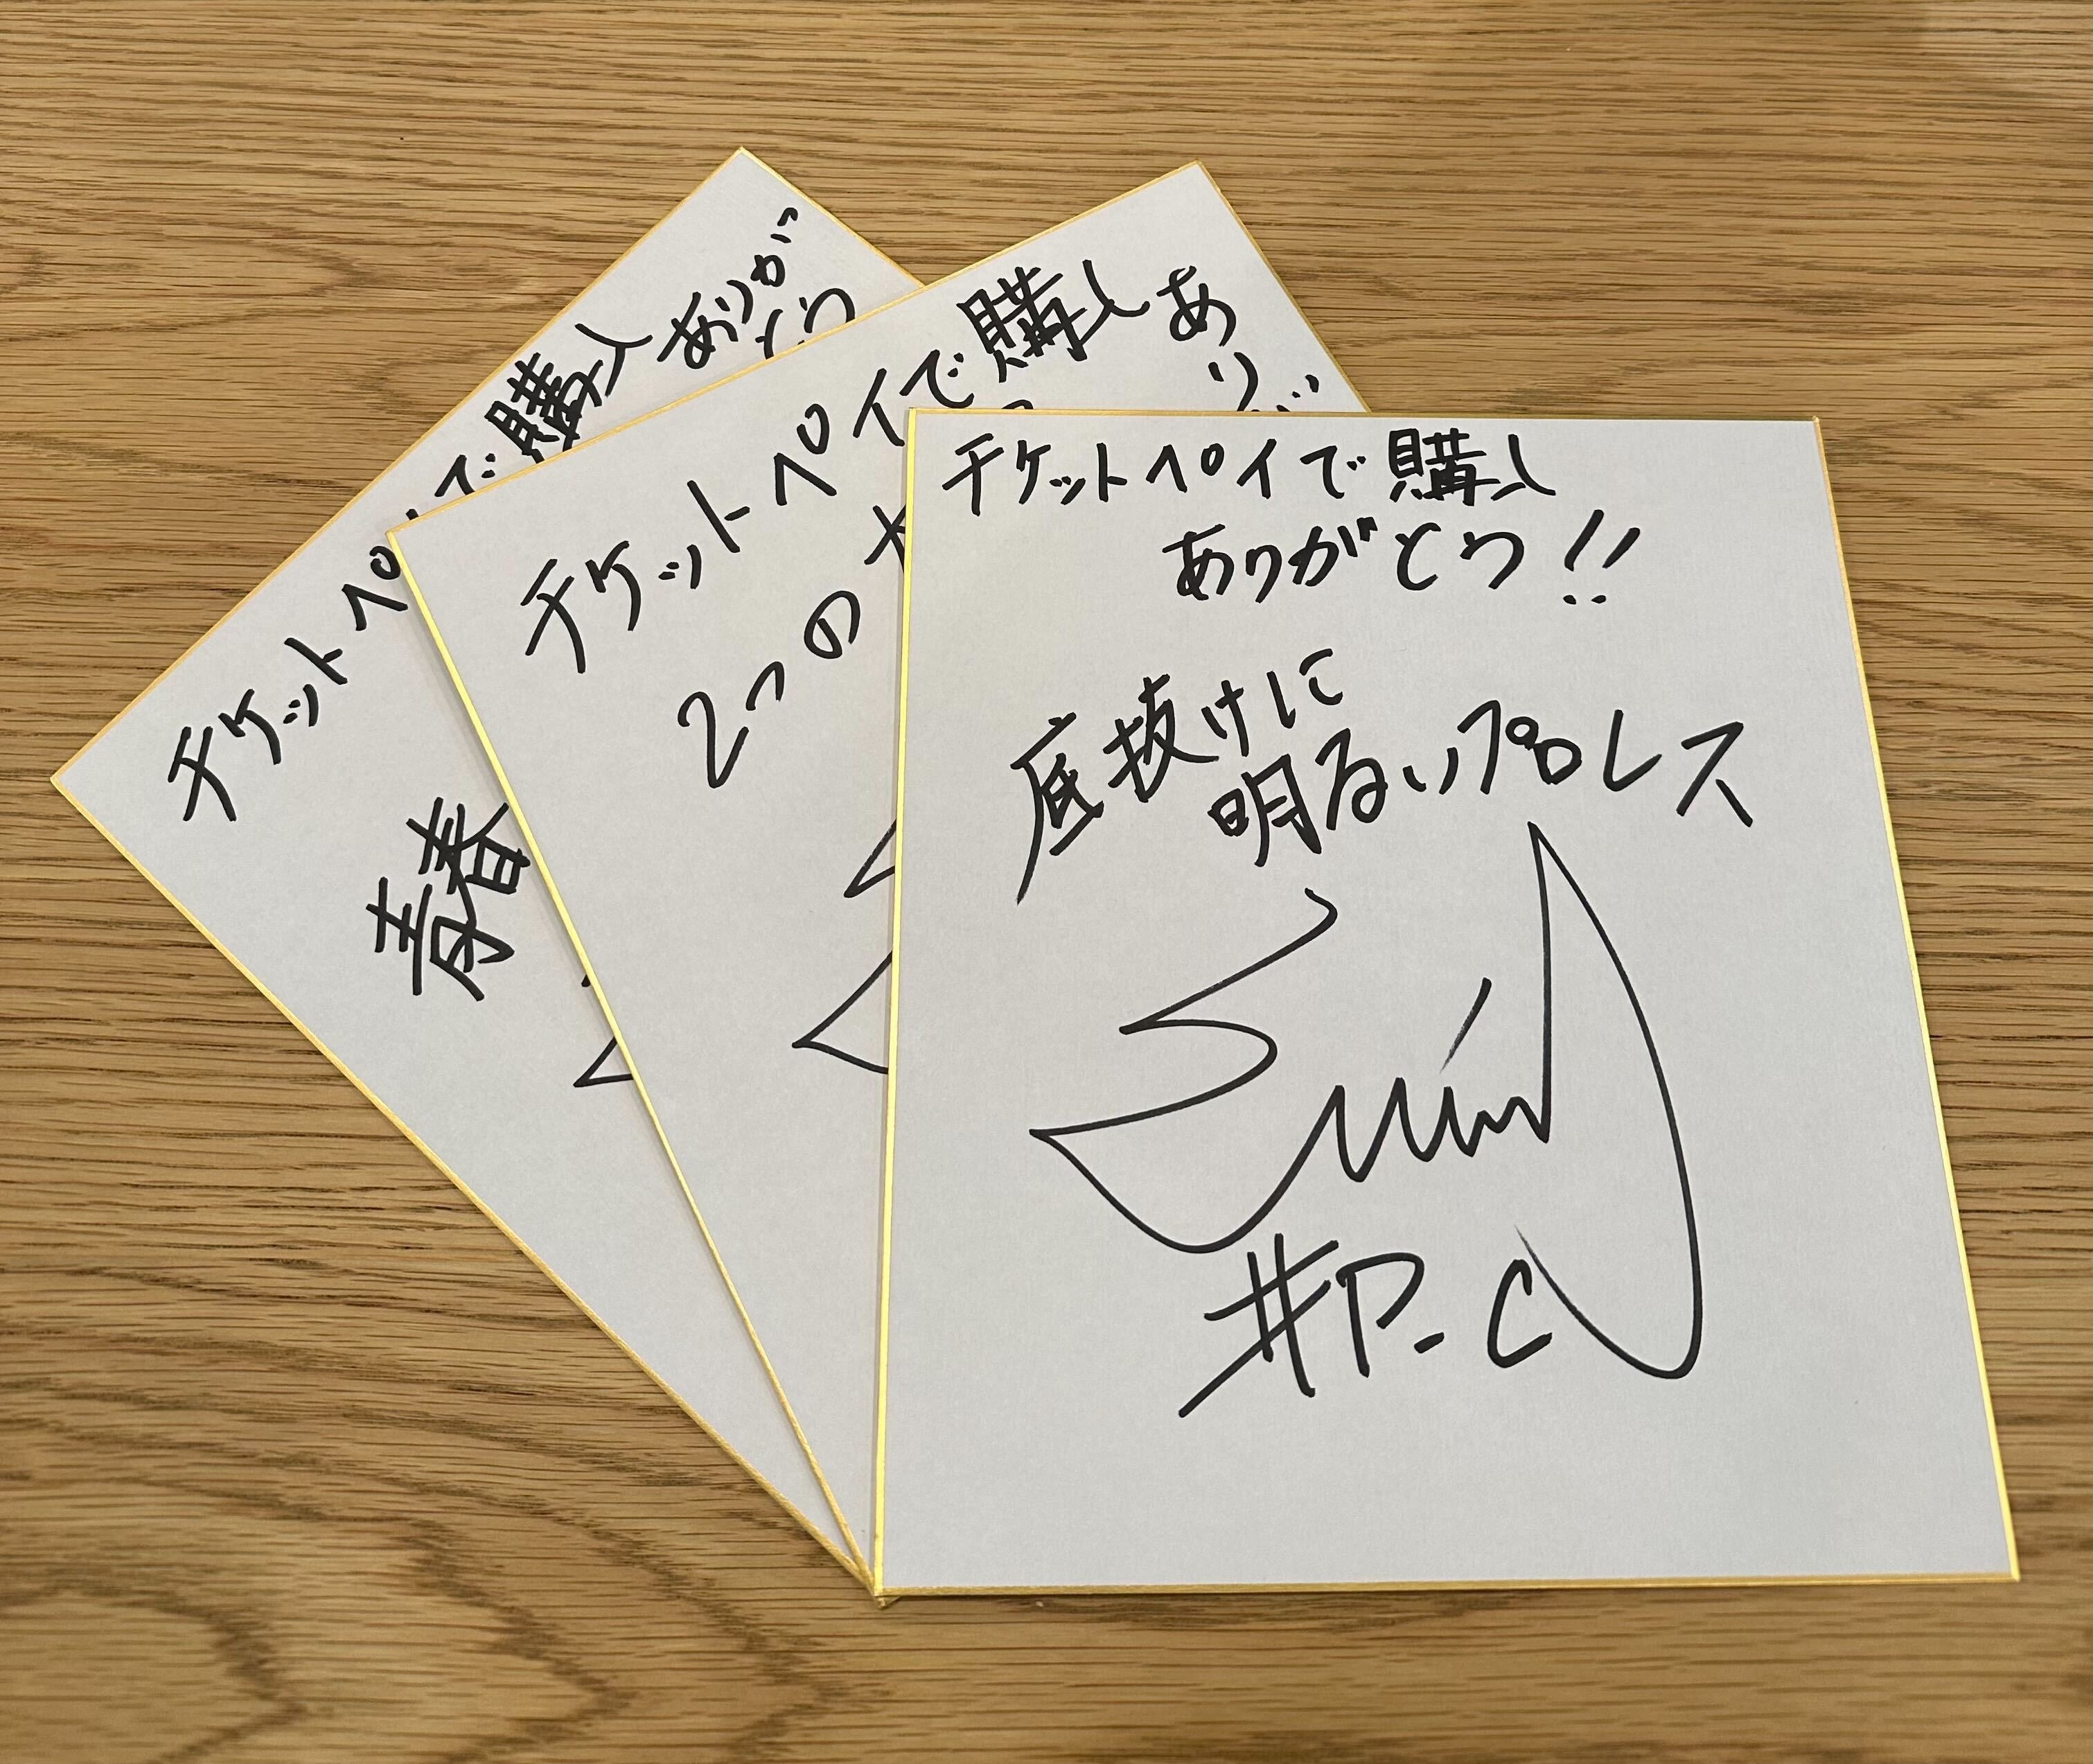 チケットペイで購入
ありがとう!!
底抜けに
明るいプロレス
#P.C
チケットペイで購入あり
2つの
チケットペ で購入ありが
とう
青春